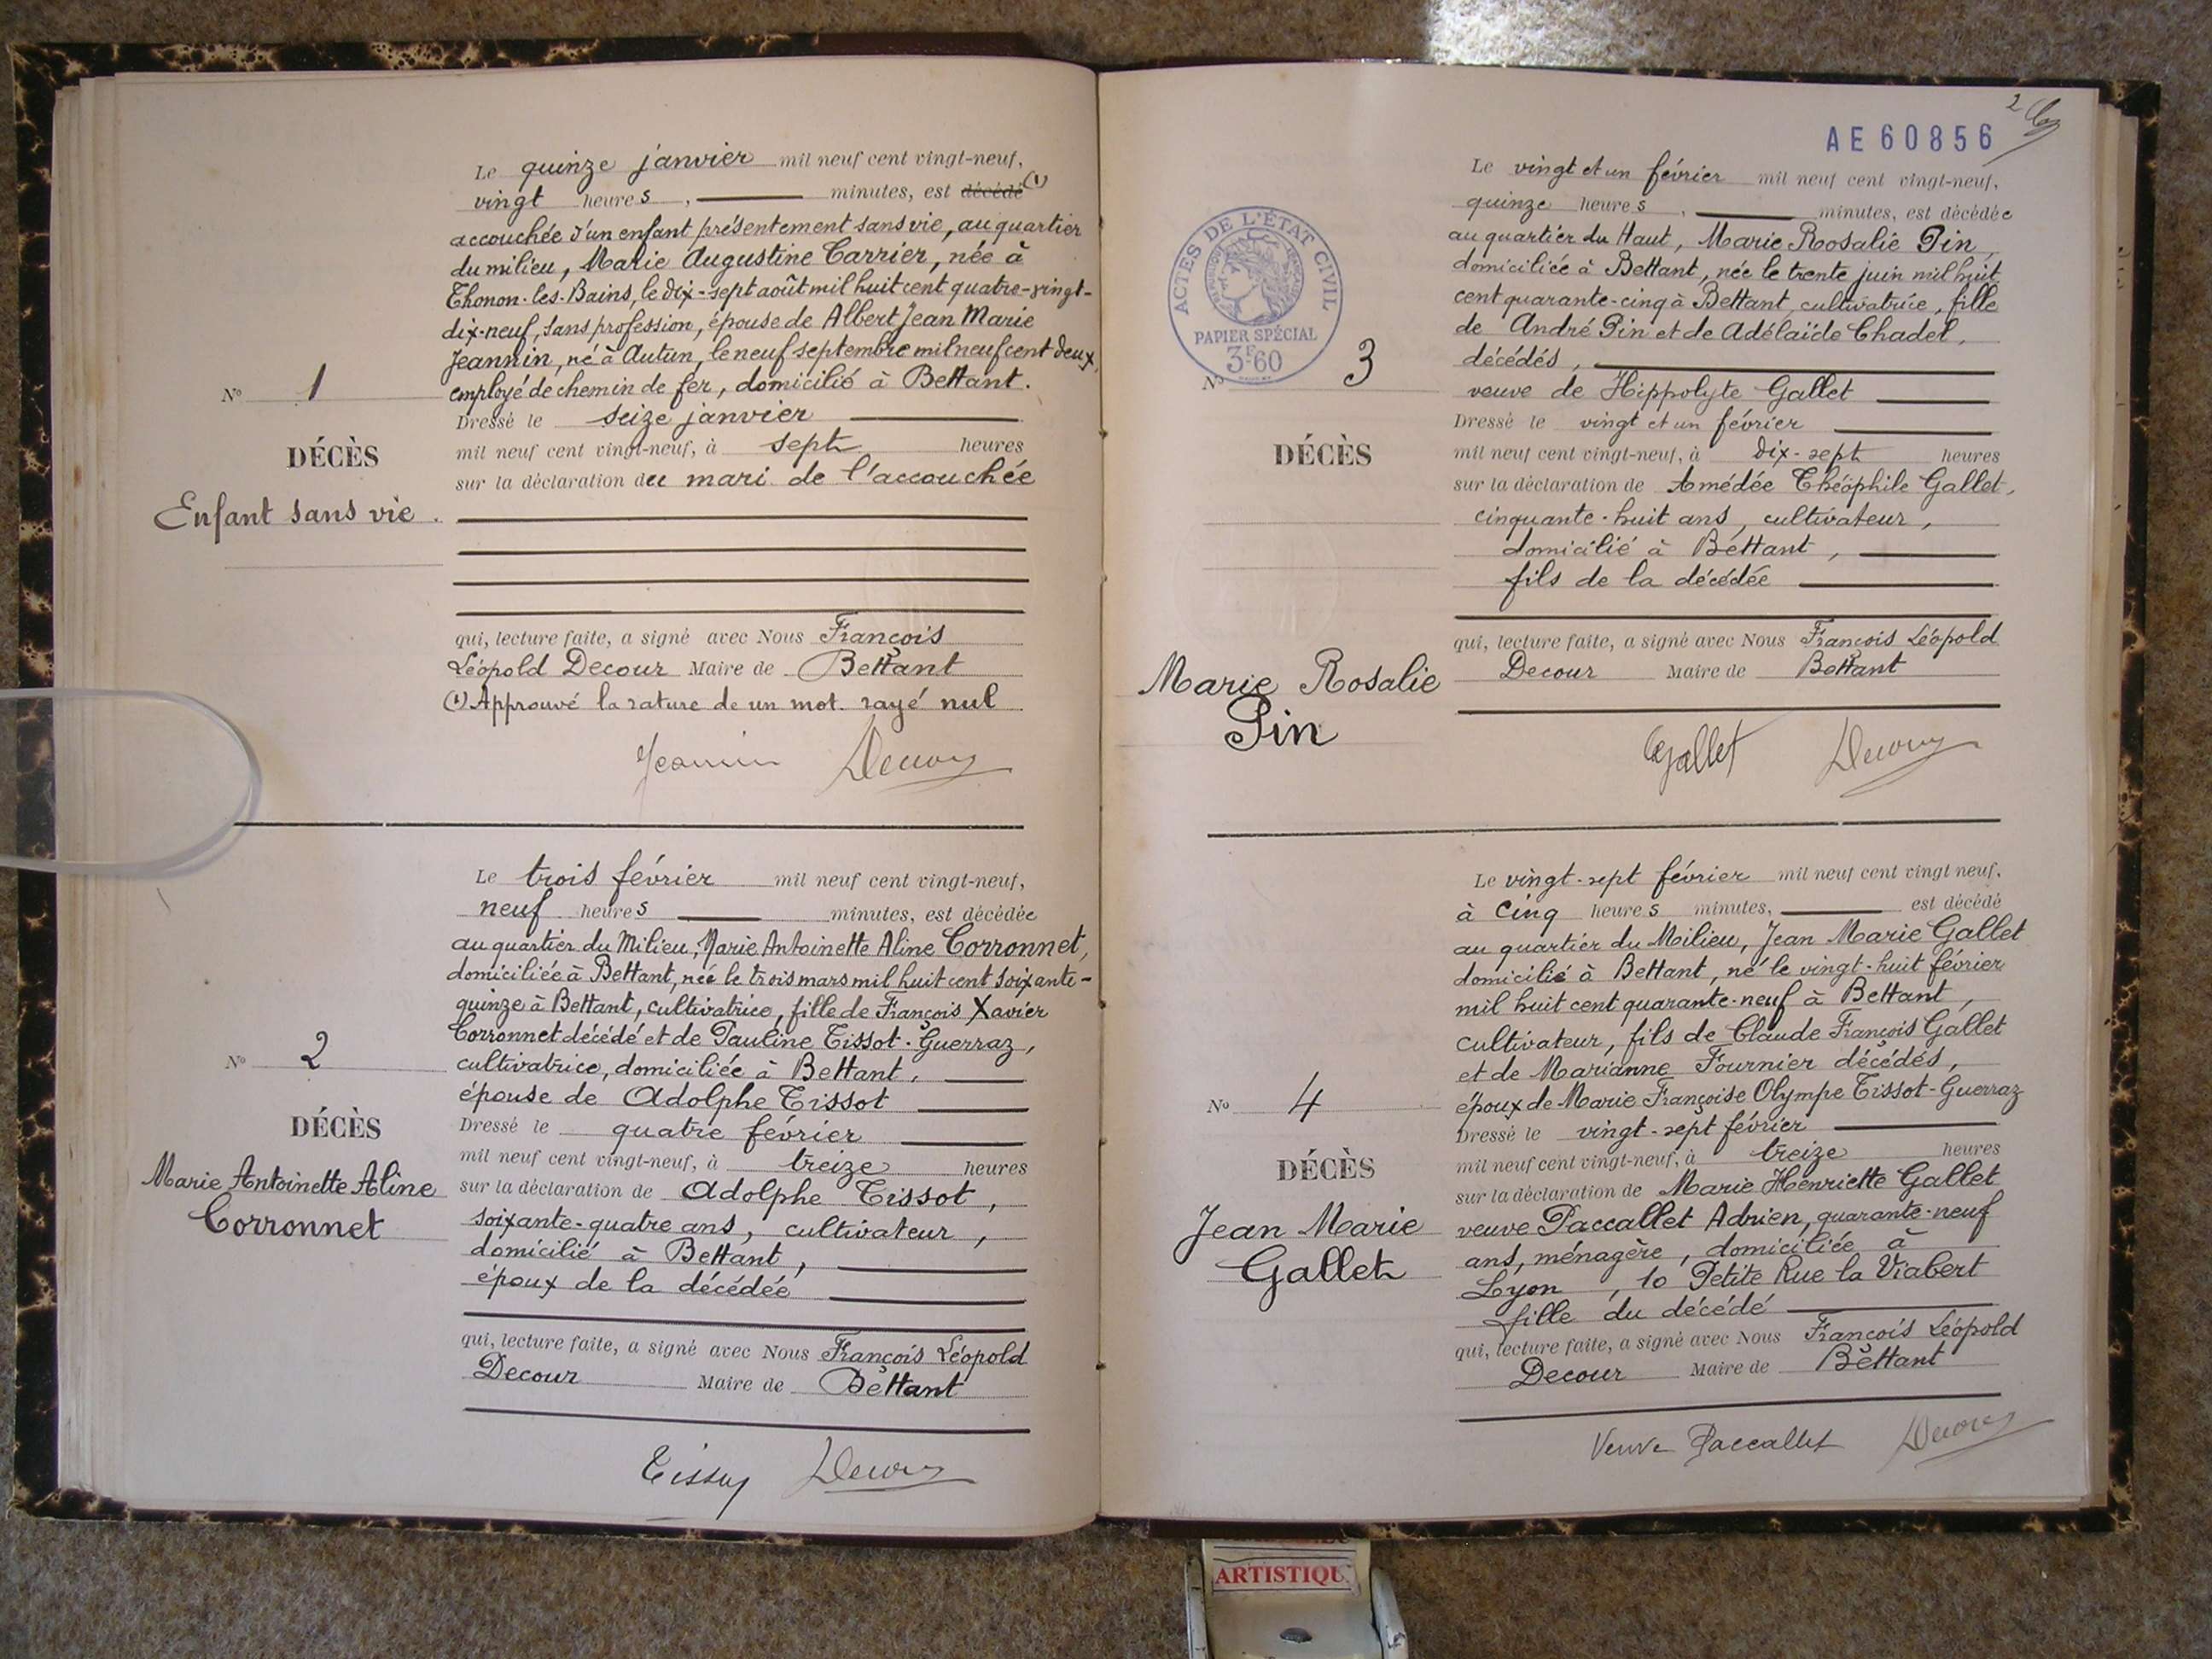 Le quinze janvier mil neuf cent vingt-neuf,
vingt heures, minutes, est décédé (1)
accouchée d'un enfant présentement sans vie, au quartier
du milieu, Marie Augustine Carrier, née à
Thonon-les-Bains, le dix-sept août mil huit cent quatre-vingt-
dix-neuf, sans profession, épouse de Albert Jean Marie
Jeannin, né à Autun, le neuf septembre mil neuf cent deux,
employé de chemin de fer, domicilié à Bettant.
Nº 1
DÉCÈS
Enfant sans vie.
Dressé le seize janvier
mil neuf cent vingt-neuf, à sept heures
sur la déclaration du mari de l'accouchée
qui, lecture faite, a signé avec Nous François
Léopold Decour Maire de Bettant
(1) Approuvé la rature de un mot rayé nul
Jeannin Decour
Le trois février mil neuf cent vingt-neuf,
neuf heures minutes, est décédée
au quartier du Milieu, Marie Antoinette Aline Corronnet,
domiciliée à Bettant, née le trois mars mil huit cent soixante-
quinze à Bettant, cultivatrice, fille de François Xavier
Corronnet décédé et de Pauline Tissot-Guerraz,
cultivatrice, domiciliée à Bettant,
épouse de Adolphe Tissot
Nº 2
DÉCÈS
Marie Antoinette Aline
Corronnet
Dressé le quatre février
mil neuf cent vingt-neuf, à treize heures
sur la déclaration de Adolphe Tissot,
soixante-quatre ans, cultivateur,
domicilié à Bettant,
époux de la décédée
qui, lecture faite, a signé avec Nous François Léopold
Decour Maire de Bettant
Tissot Decour
2
AE 60856
Le vingt et un février mil neuf cent vingt-neuf,
quinze heures, minutes, est décédée
au quartier du Haut, Marie Rosalie Pin,
domiciliée à Bettant, née le trente juin mil huit
cent quarante-cinq à Bettant, cultivatrice, fille
de André Pin et de Adélaïde Chadel,
décédés,
veuve de Hippolyte Gallet
ACTES DE L'ÉTAT CIVIL
PAPIER SPÉCIAL
3F60
Nº 3
DÉCÈS
Marie Rosalie
Pin
Dressé le vingt et un février
mil neuf cent vingt-neuf, à dix-sept heures
sur la déclaration de Amédée Théophile Gallet,
cinquante-huit ans, cultivateur,
domicilié à Bettant,
fils de la décédée
qui, lecture faite, a signé avec Nous François Léopold
Decour Maire de Bettant
Gallet Decour
Le vingt-sept février mil neuf cent vingt neuf,
à cinq heures minutes, est décédé
au quartier du Milieu, Jean Marie Gallet
domicilié à Bettant, né le vingt-huit février
mil huit cent quarante-neuf à Bettant,
cultivateur, fils de Claude François Gallet
et de Marianne Fournier décédés,
époux de Marie Françoise Olympe Tissot-Guerraz
Nº 4
DÉCÈS
Jean Marie
Gallet
Dressé le vingt-sept février
mil neuf cent vingt-neuf, à treize heures
sur la déclaration de Marie Henriette Gallet
veuve Paccallet Adrien, quarante-neuf
ans, ménagère, domiciliée à
Lyon, 10 Petite Rue la Viabert
fille du décédé
qui, lecture faite, a signé avec Nous François Léopold
Decour Maire de Bettant
Veuve Paccallet Decour
ARTISTIQU